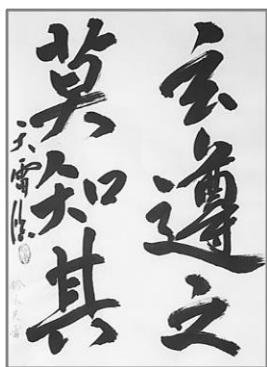 玄遵之
莫知其
天雷書